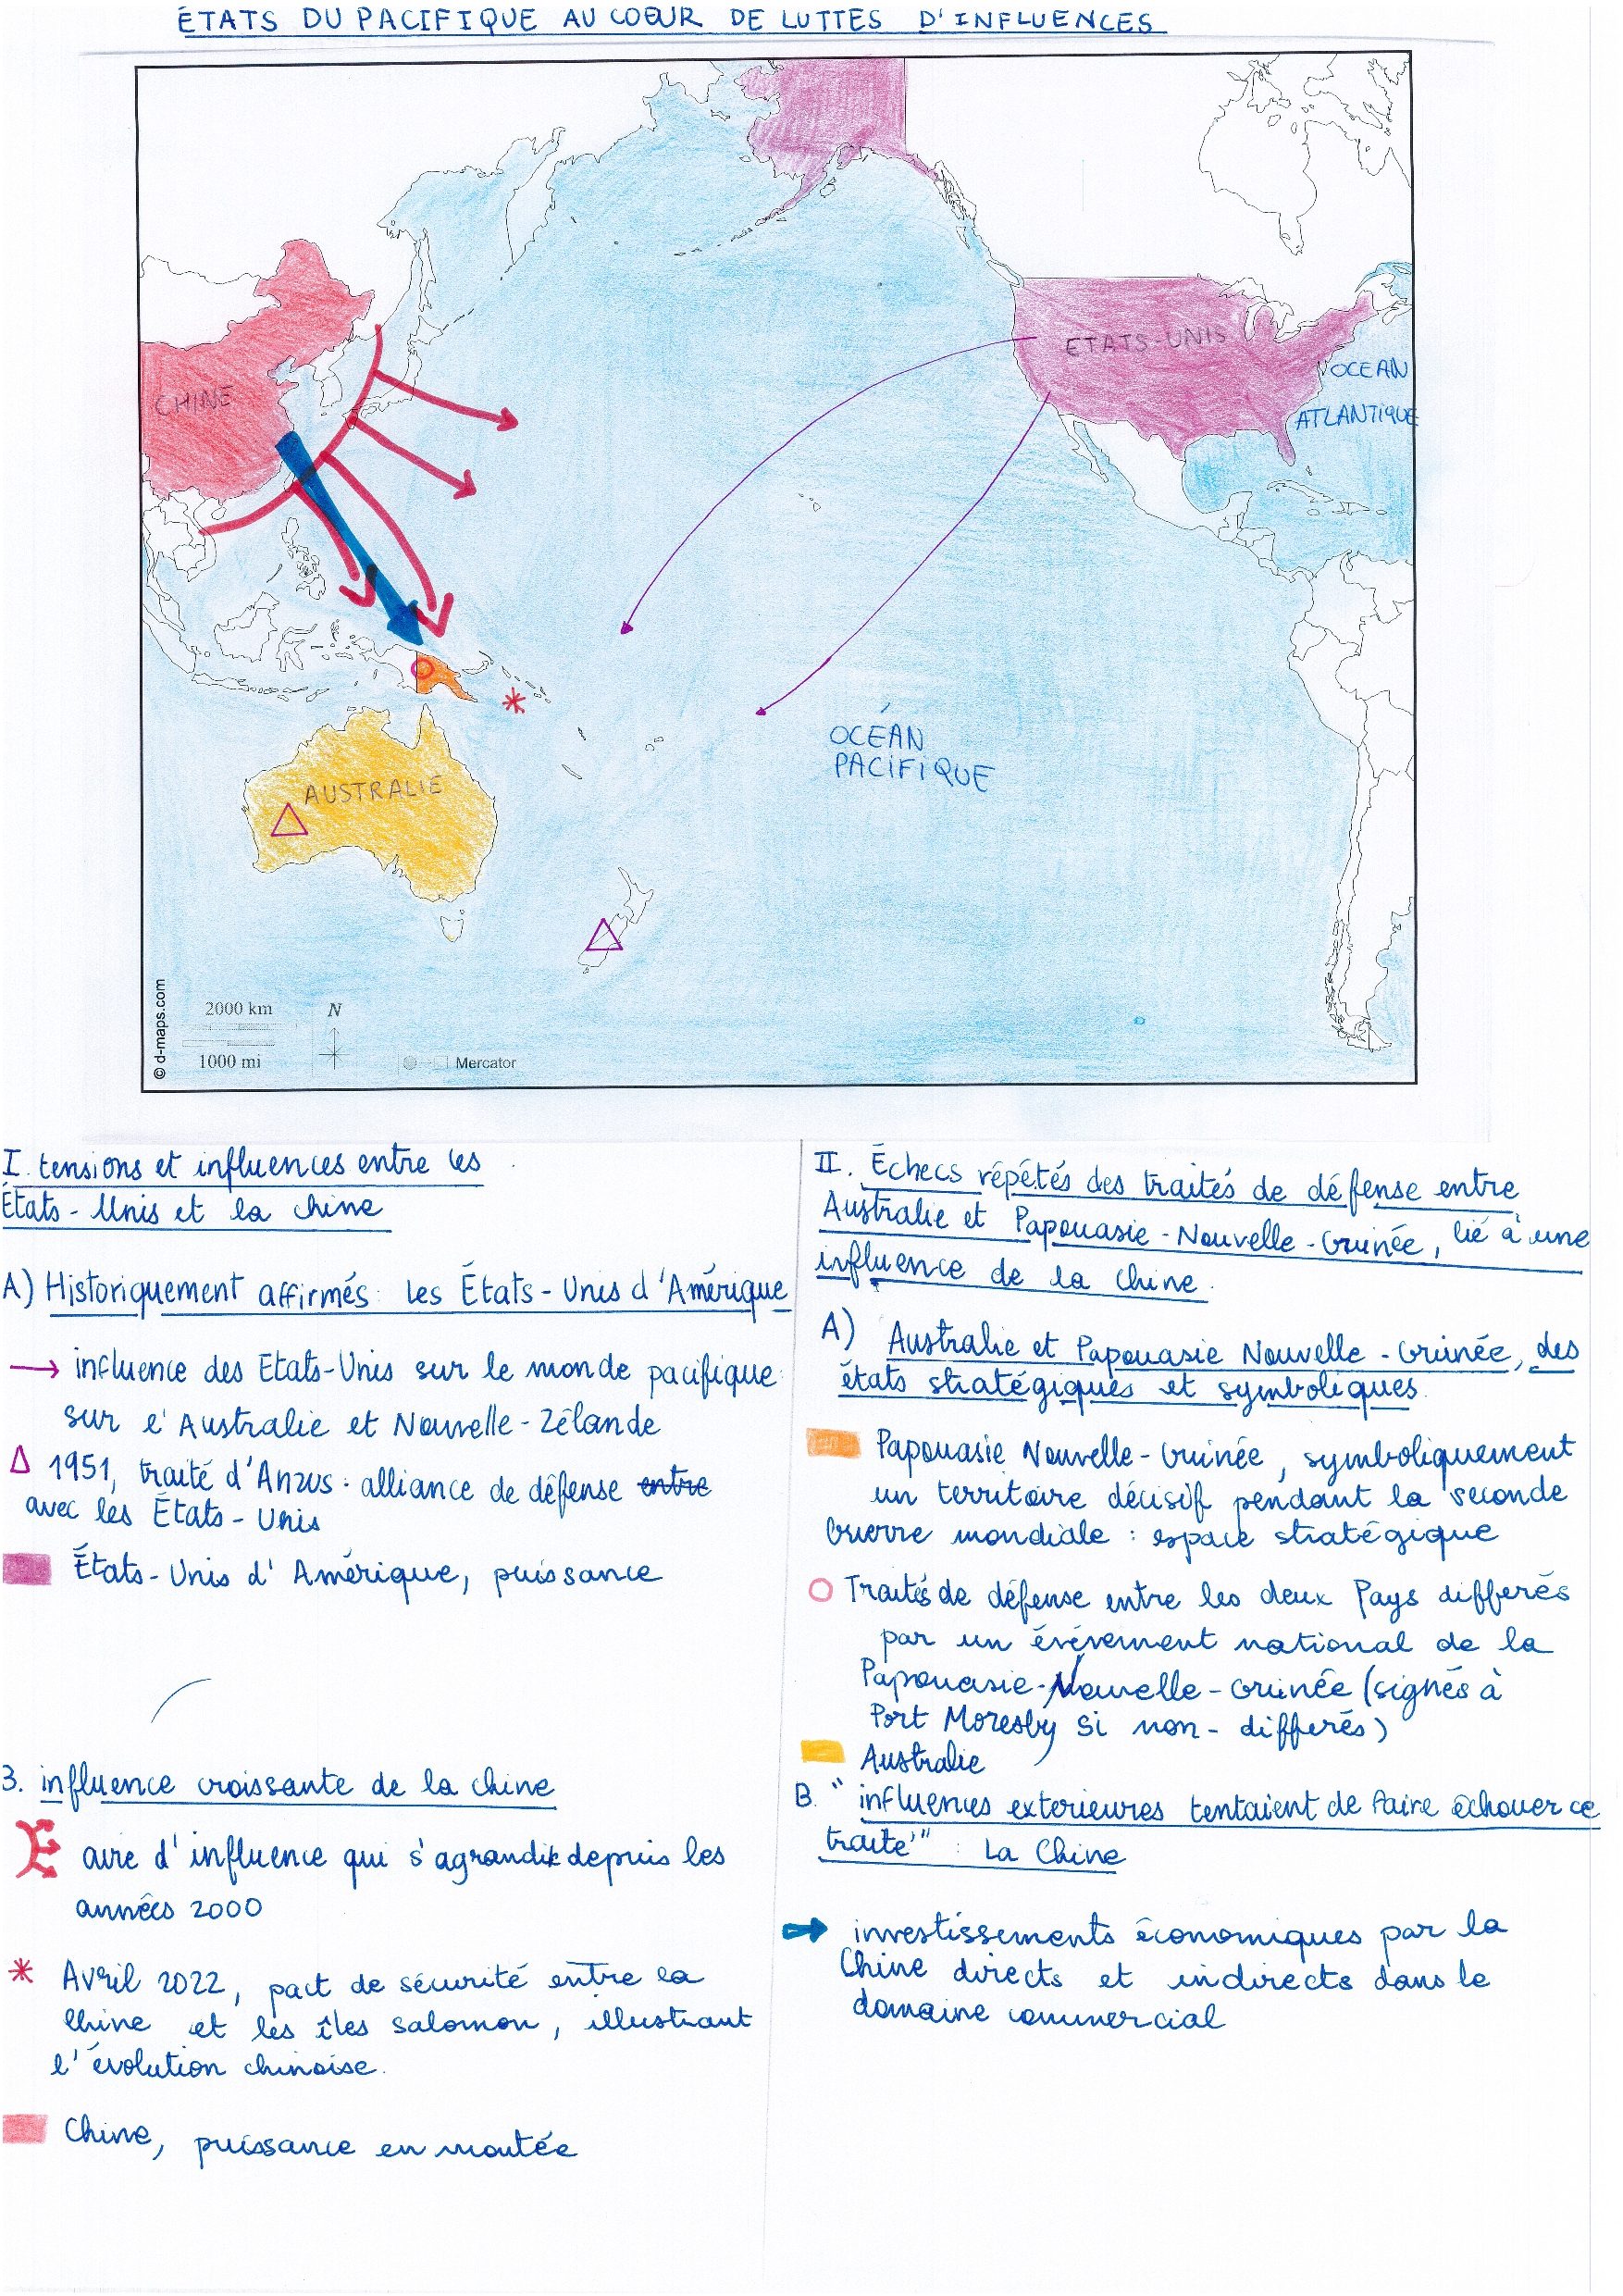 ÉTATS DU PACIFIQUE AU COEUR DE LUTTES D'INFLUENCES
CHINE
ETATS-UNIS
OCEAN
ATLANTIQUE
AUSTRALIE
OCÉAN
PACIFIQUE
2000 km
1000 mi
N
Mercator
© d-maps.com
I. tensions et influences entre les
États-Unis et la chine
A) Historiquement affirmés: les États-Unis d'Amérique
influence des Etats-Unis sur le monde pacifique
sur l'Australie et Nouvelle-Zélande
1951, traité d'Anzus: alliance de défense entre
avec les États-Unis
États-Unis d'Amérique, puissance
3. influence croissante de la chine
aire d'influence qui s'agrandit depuis les
années 2000
Avril 2022, pact de sécurité entre la
Chine et les îles salomon, illustrant
l'évolution chinoise.
Chine, puissance en montée
II. Échecs répétés des traités de défense entre
Australie et Papouasie-Nouvelle-Guinée, lié à une
influence de la Chine.
A) Australie et Papouasie Nouvelle-Guinée, des
états stratégiques et symboliques.
Papouasie Nouvelle-Guinée, symboliquement
un territoire décisif pendant la seconde
Guerre mondiale: espace stratégique
Traités de défense entre les deux Pays differés
par un événement national de la
Papouasie-Nouvelle-Guinée (signés à
Port Moresby si non-differés)
Australie
B. "influences exterieures tentaient de faire échouer ce
traité" : La Chine
investissements économiques par la
Chine directs et indirects dans le
domaine commercial